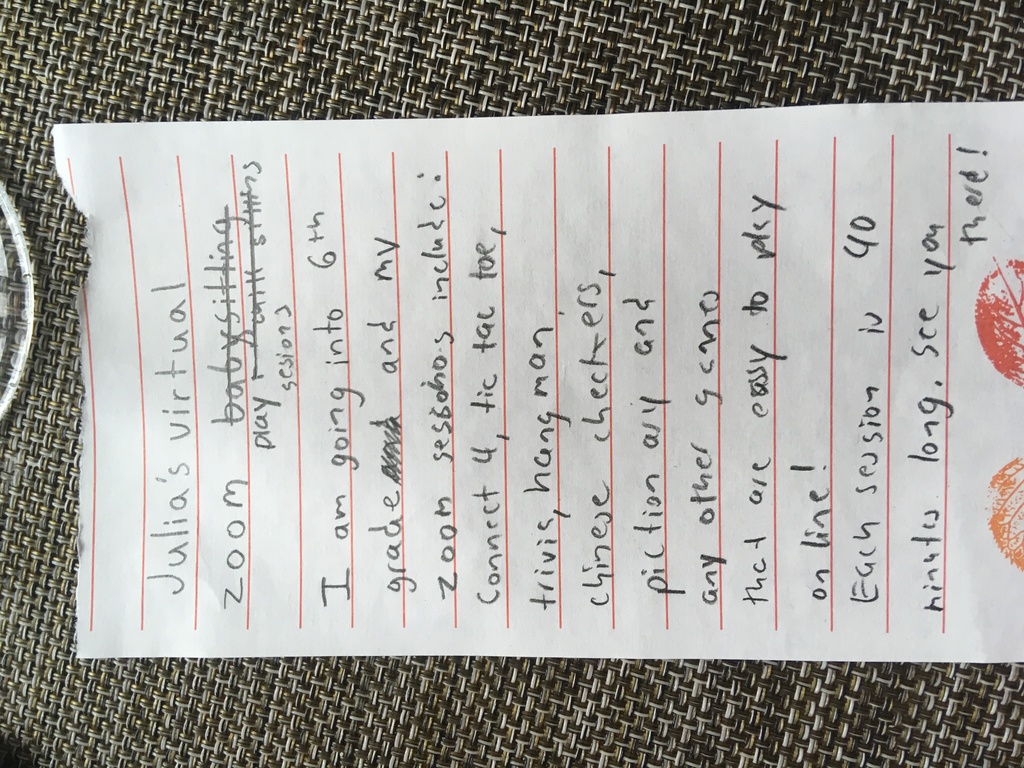 Julia's virtual
zoom babysitting
play
sesions
I am going into 6th
grade and my
zoom sessions include:
Connect 4, tic tac toe,
trivia, hang man,
chinese checkers,
piction ary and
any other games
that are easy to play
on line!
Each session is 40
minutes long. See you
there!